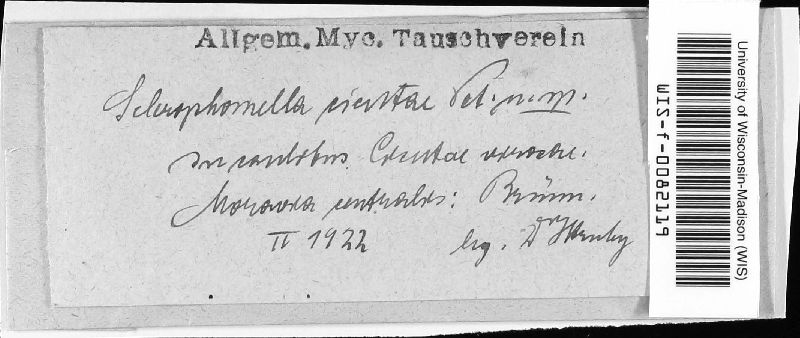 Allgem. Myc. Tauschverein
Sclerophomella cicutae Pet. n. sp.
In caulibus Cicutae virosae.
Moravia centralis: Brünn.
II 1922 leg. Dr Hruby
University of Wisconsin-Madison (WIS)
WIS-f-0082119